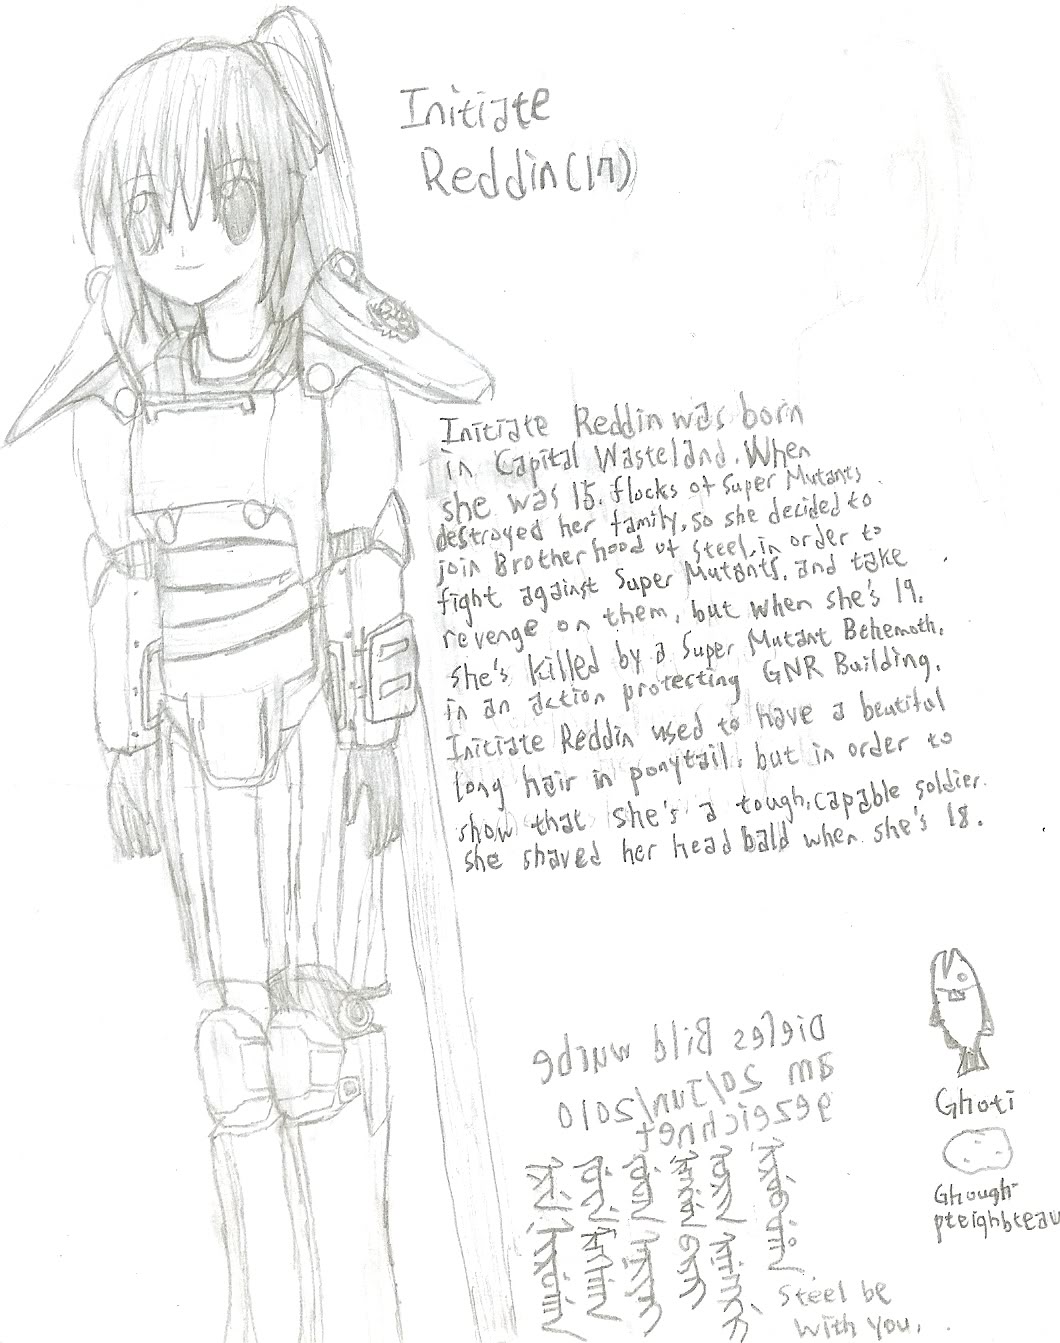 Initiate
Reddin(17)
Initiate Reddin was born
in Capital Wasteland. When
she was 15. flocks of Super Mutants
destroyed her family, so she decided to
join Brotherhood of Steel, in order to
fight against Super Mutants, and take
revenge on them, but when she's 19.
she's killed by a Super Mutant Behemoth,
in an action protecting GNR Building.
Initiate Reddin used to have a beutiful
long hair in ponytail. but in order to
show that she's a tough, capable soldier.
she shaved her head bald when she's 18.
Dieles Bild wurde
am 20/Jun/2010
gezeichnet
Ghoti
Ghough-
pteighbteau
Steel be
with you.